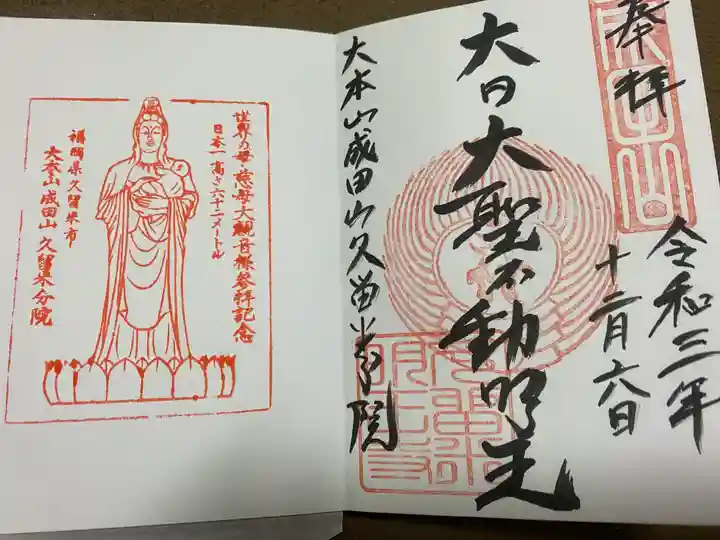 奉拝
令和三年
十二月六日
大日大聖不動明王
大本山成田山久留米分院
世界の母 慈母大観音様参拝記念
日本一高さ六十二メートル
福岡県久留米市
大本山成田山 久留米分院